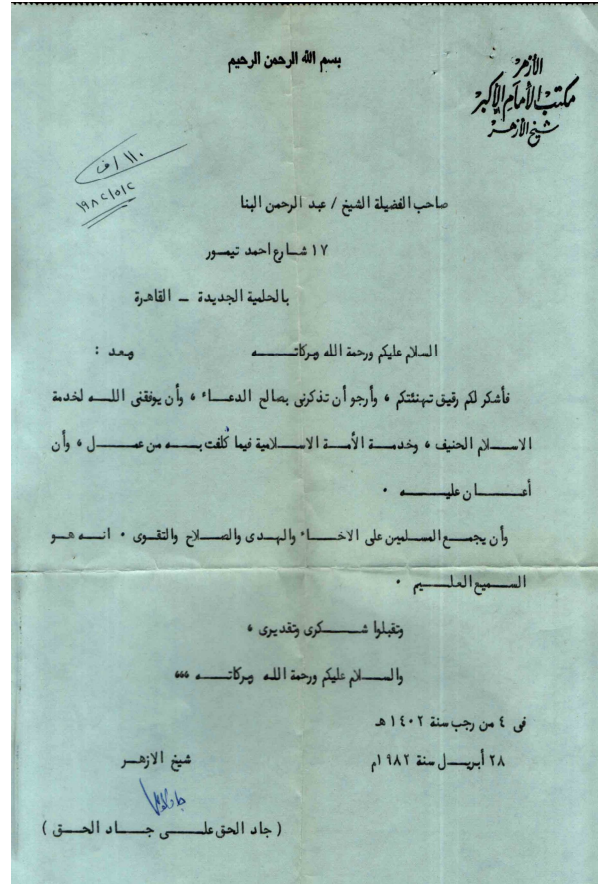 بسم الله الرحمن الرحيم
الأزهر
مكتب الأمام الأكبر
شيخ الأزهر
١١٠/ف
١٩٨٢/٥/٢
صاحب الفضيلة الشيخ / عبد الرحمن البنا
١٧ شارع احمد تيمور
بالحلمية الجديدة - القاهرة
السلام عليكم ورحمة الله وبركاته وبعد :
فأشكر لكم رقيق تهنئتكم ، وأرجو أن تذكرنى بصالح الدعاء ، وأن يوفقنى الله لخدمة
الاسلام الحنيف ، وخدمة الأمة الاسلامية فيما كُلفت به من عمل ، وأن
أعان عليه .
وأن يجمع المسلمين على الاخاء والهدى والصلاح والتقوى . انه هو
السميع العليم .
وتقبلوا شكرى وتقديرى ،
والسلام عليكم ورحمة الله وبركاته ،،،
فى ٤ من رجب سنة ١٤٠٢ هـ
٢٨ أبريل سنة ١٩٨٢م
شيخ الازهر
( جاد الحق على جاد الحق )